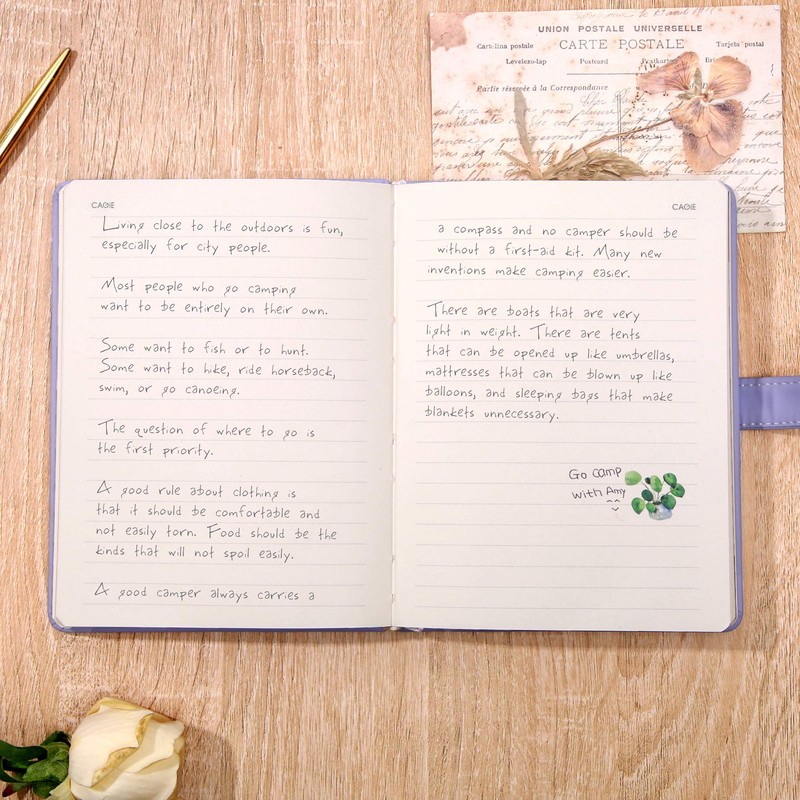 UNION POSTALE UNIVERSELLE
CARTE POSTALE
Cartolina postale
Tarjeta postal
Levelezo-lap
Postcard
Partie réservée à la Correspondance
CAGIE
Living close to the outdoors is fun,
especially for city people.
Most people who go camping
want to be entirely on their own.
Some want to fish or to hunt.
Some want to hike, ride horseback,
swim, or go canoeing.
The question of where to go is
the first priority.
A good rule about clothing is
that it should be comfortable and
not easily torn. Food should be the
kinds that will not spoil easily.
A good camper always carries a
CAGIE
a compass and no camper should be
without a first-aid kit. Many new
inventions make camping easier.
There are boats that are very
light in weight. There are tents
that can be opened up like umbrellas,
mattresses that can be blown up like
balloons, and sleeping bags that make
blankets unnecessary.
Go camp
with Amy